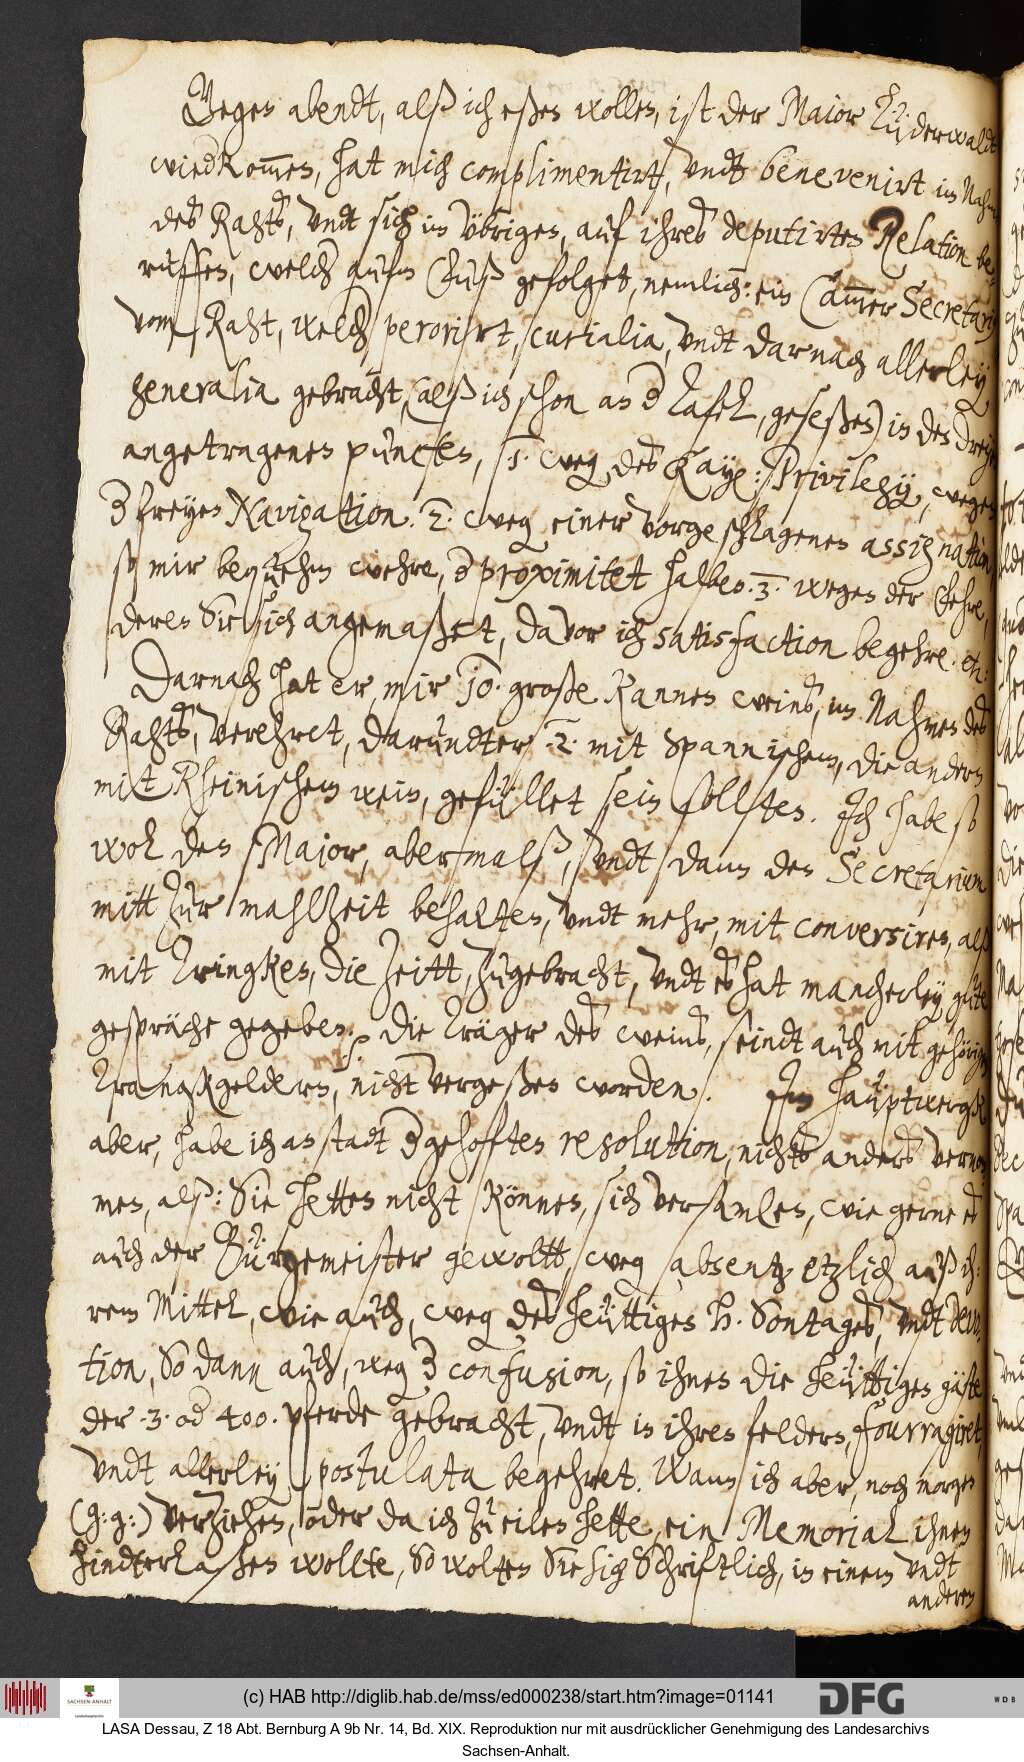 Gegen abendt, alß ich eßen wollen, ist der Maior Lüderwaldt
wiedkom̄en, hat mich complimentirt, vndt benevenirt im Nahm
deß Rahts, vndt sich im übrigen, auf ihres deputirten Relation be¬
ruffen, welch aufm Fuß gefolget, nemlich: ein Cam̄er Secretarius
vom Raht, welch perorirt, curialia, vndt darnach allerley
generalia gebracht, (alß ich schon an d Tafel, geseßen) in den dreyen
angetragenen puncten, 1. weg deß Kays: Privilegij, wegen
d freyen Navigation. 2. weg einer vorgeschlagenen assignation
so mir bequehm wehre, d proximitet halben. 3. wegen der Ehre,
deren Sie sich angemaßet, davor ich satisfaction begehre. etc:
Darnach hat er, mir 10. große Kannen weins, im Nahmen deß
Rahts, verehret, darundter .2. mit Spannischem, die andern
mit Rheinischem wein, gefüllet sein sollten. Ich habe so
wol den Maior, abermalß, vndt dann den Secretarium
mitt zur mahlzeit behalten, vndt mehr, mit conversiren, alß
mit Tringken, die zeitt, zugebracht, vndt es hat mancherley gute
gespräche gegeben. Die Träger des weins, seindt auch mit gehörigen
Trangkgeldern, nicht vergeßen worden. Im hauptwergk
aber, habe ich anstadt d gehofften resolution, nichts anders vernom¬
men, alß: Sie hetten nicht können, sich versamlen, wie gerne es
auch der Bürgemeister gewoltt, weg absentz etzlich auß ih:
rem Mittel, wie auch, weg deß heüttigen h. Sontages, vndt devo¬
tion, So dann auch, weg d confusion, so ihnen die heüttigen gäste
der .3. od 400. pferde gebracht, vndt in ihren feldern, fourragiret,
vndt allerley postulata begehret. Wann ich aber, noch morgen
(g: g:) verziehen, oder da ich zu eilen hette, ein Memorial ihnen
hindterlaßen wollte, So wolten Sie sich Schriftlich, in einem vndt
anderen
(c) HAB http://diglib.hab.de/mss/ed000238/start.htm?image=01141
DFG
WDB
SACHSEN-ANHALT
LASA Dessau, Z 18 Abt. Bernburg A 9b Nr. 14, Bd. XIX. Reproduktion nur mit ausdrücklicher Genehmigung des Landesarchivs
Sachsen-Anhalt.